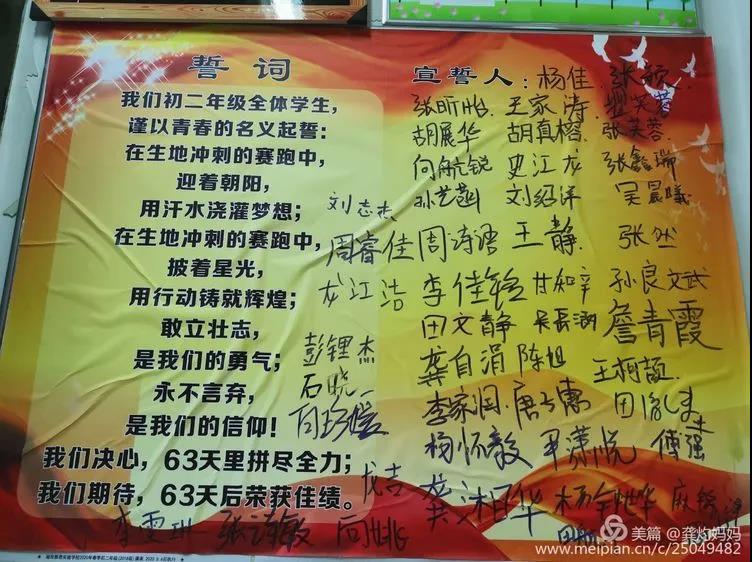 誓词
我们初二年级全体学生，
谨以青春的名义起誓：
在生地冲刺的赛跑中，
迎着朝阳，
用汗水浇灌梦想；
在生地冲刺的赛跑中，
披着星光，
用行动铸就辉煌；
敢立壮志，
是我们的勇气；
永不言弃，
是我们的信仰！
我们决心，63天里拼尽全力；
我们期待，63天后荣获佳绩。
宣誓人：杨佳 张颖
张昕怡 王家涛
胡展华 胡真榕 张芙蓉
向航锐 史江龙 张鑫瑞
孙艺菡 刘绍洋 吴晨曦
刘志杰
周睿佳 周诗语 王静 张然
龙江浩 李佳铃 甘如辛 孙良文武
田文静 詹青霞
彭锂杰 龚自涓 陈旭 王柯颉
石晓 李家润
杨怀毅 覃潇悦 傅强
龙吉 龚湘华
李雯琳 张诗敏 向姚
美篇@龚灼妈妈
www.meipian.cn/c/25049482